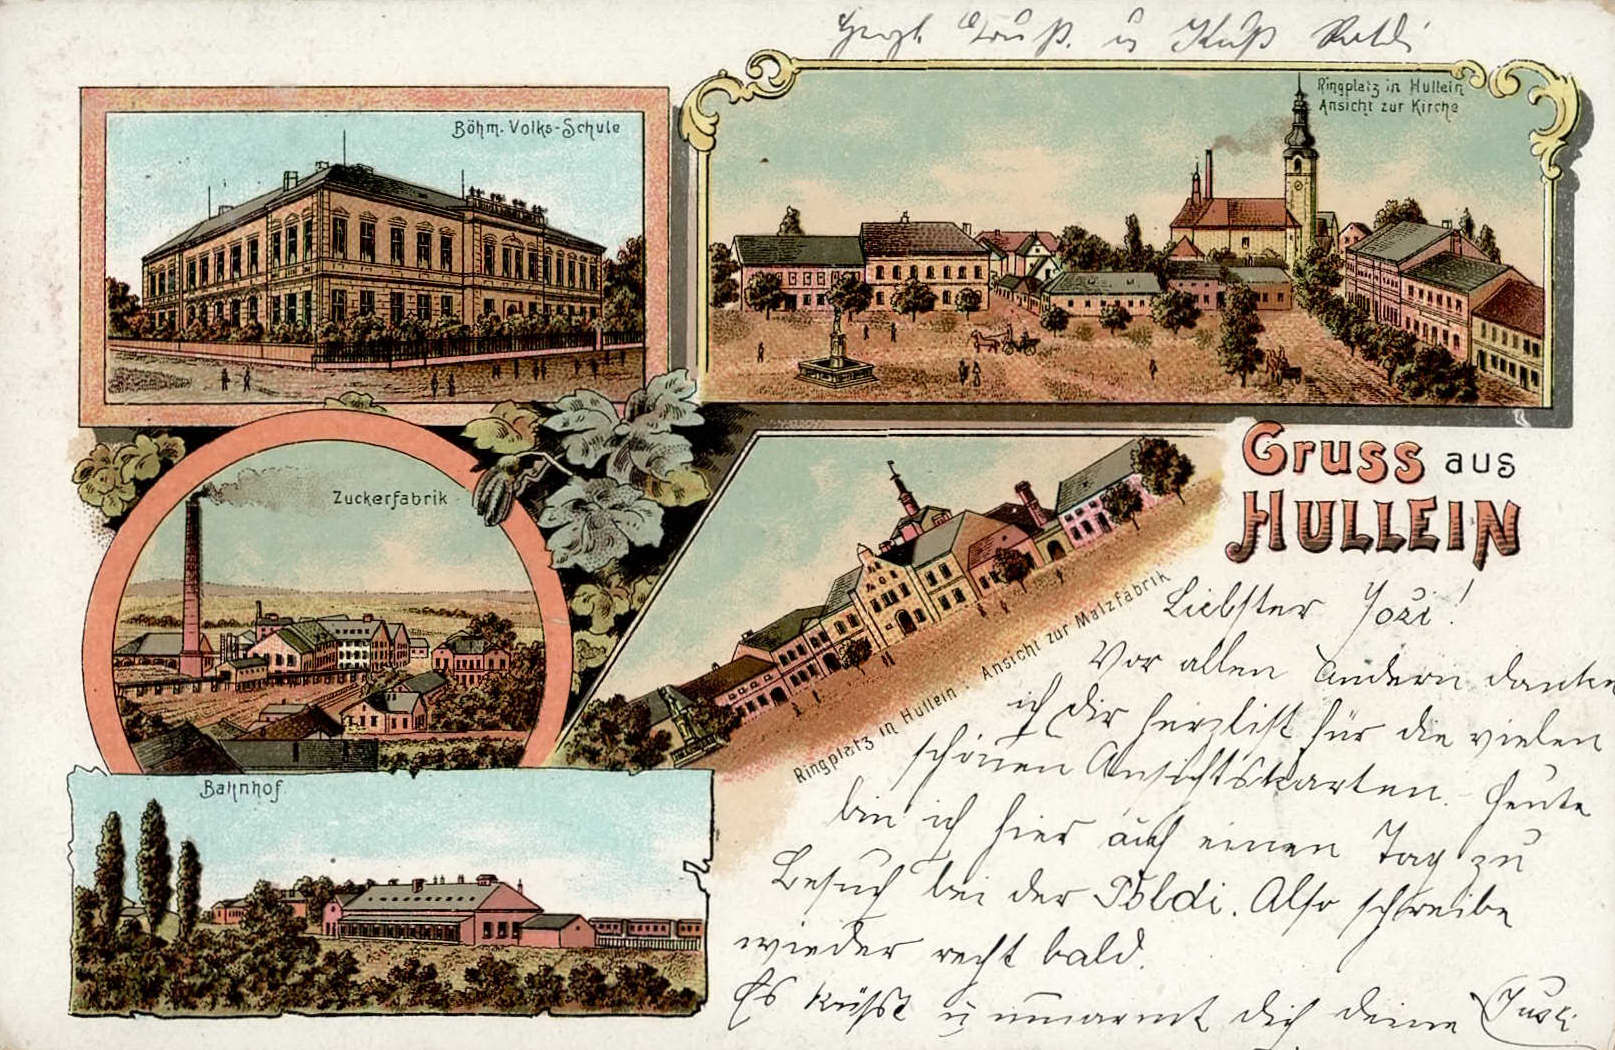 Herzl. Gruß. u Kuß Poldi
Böhm. Volks-Schule
Ringplatz in Hullein
Ansicht zur Kirche
Zuckerfabrik
Gruss aus
HULLEIN
Ringplatz in Hullein - Ansicht zur Malzfabrik
Bahnhof
Liebster Jozi!
Vor allen Andern danke
ich Dir herzlichst für die vielen
schönen Ansichtskarten. Heute
bin ich hier auf einen Tag zu
Besuch bei der Poldi. Also schreibe
wieder recht bald.
Es küßt u umarmt dich deine